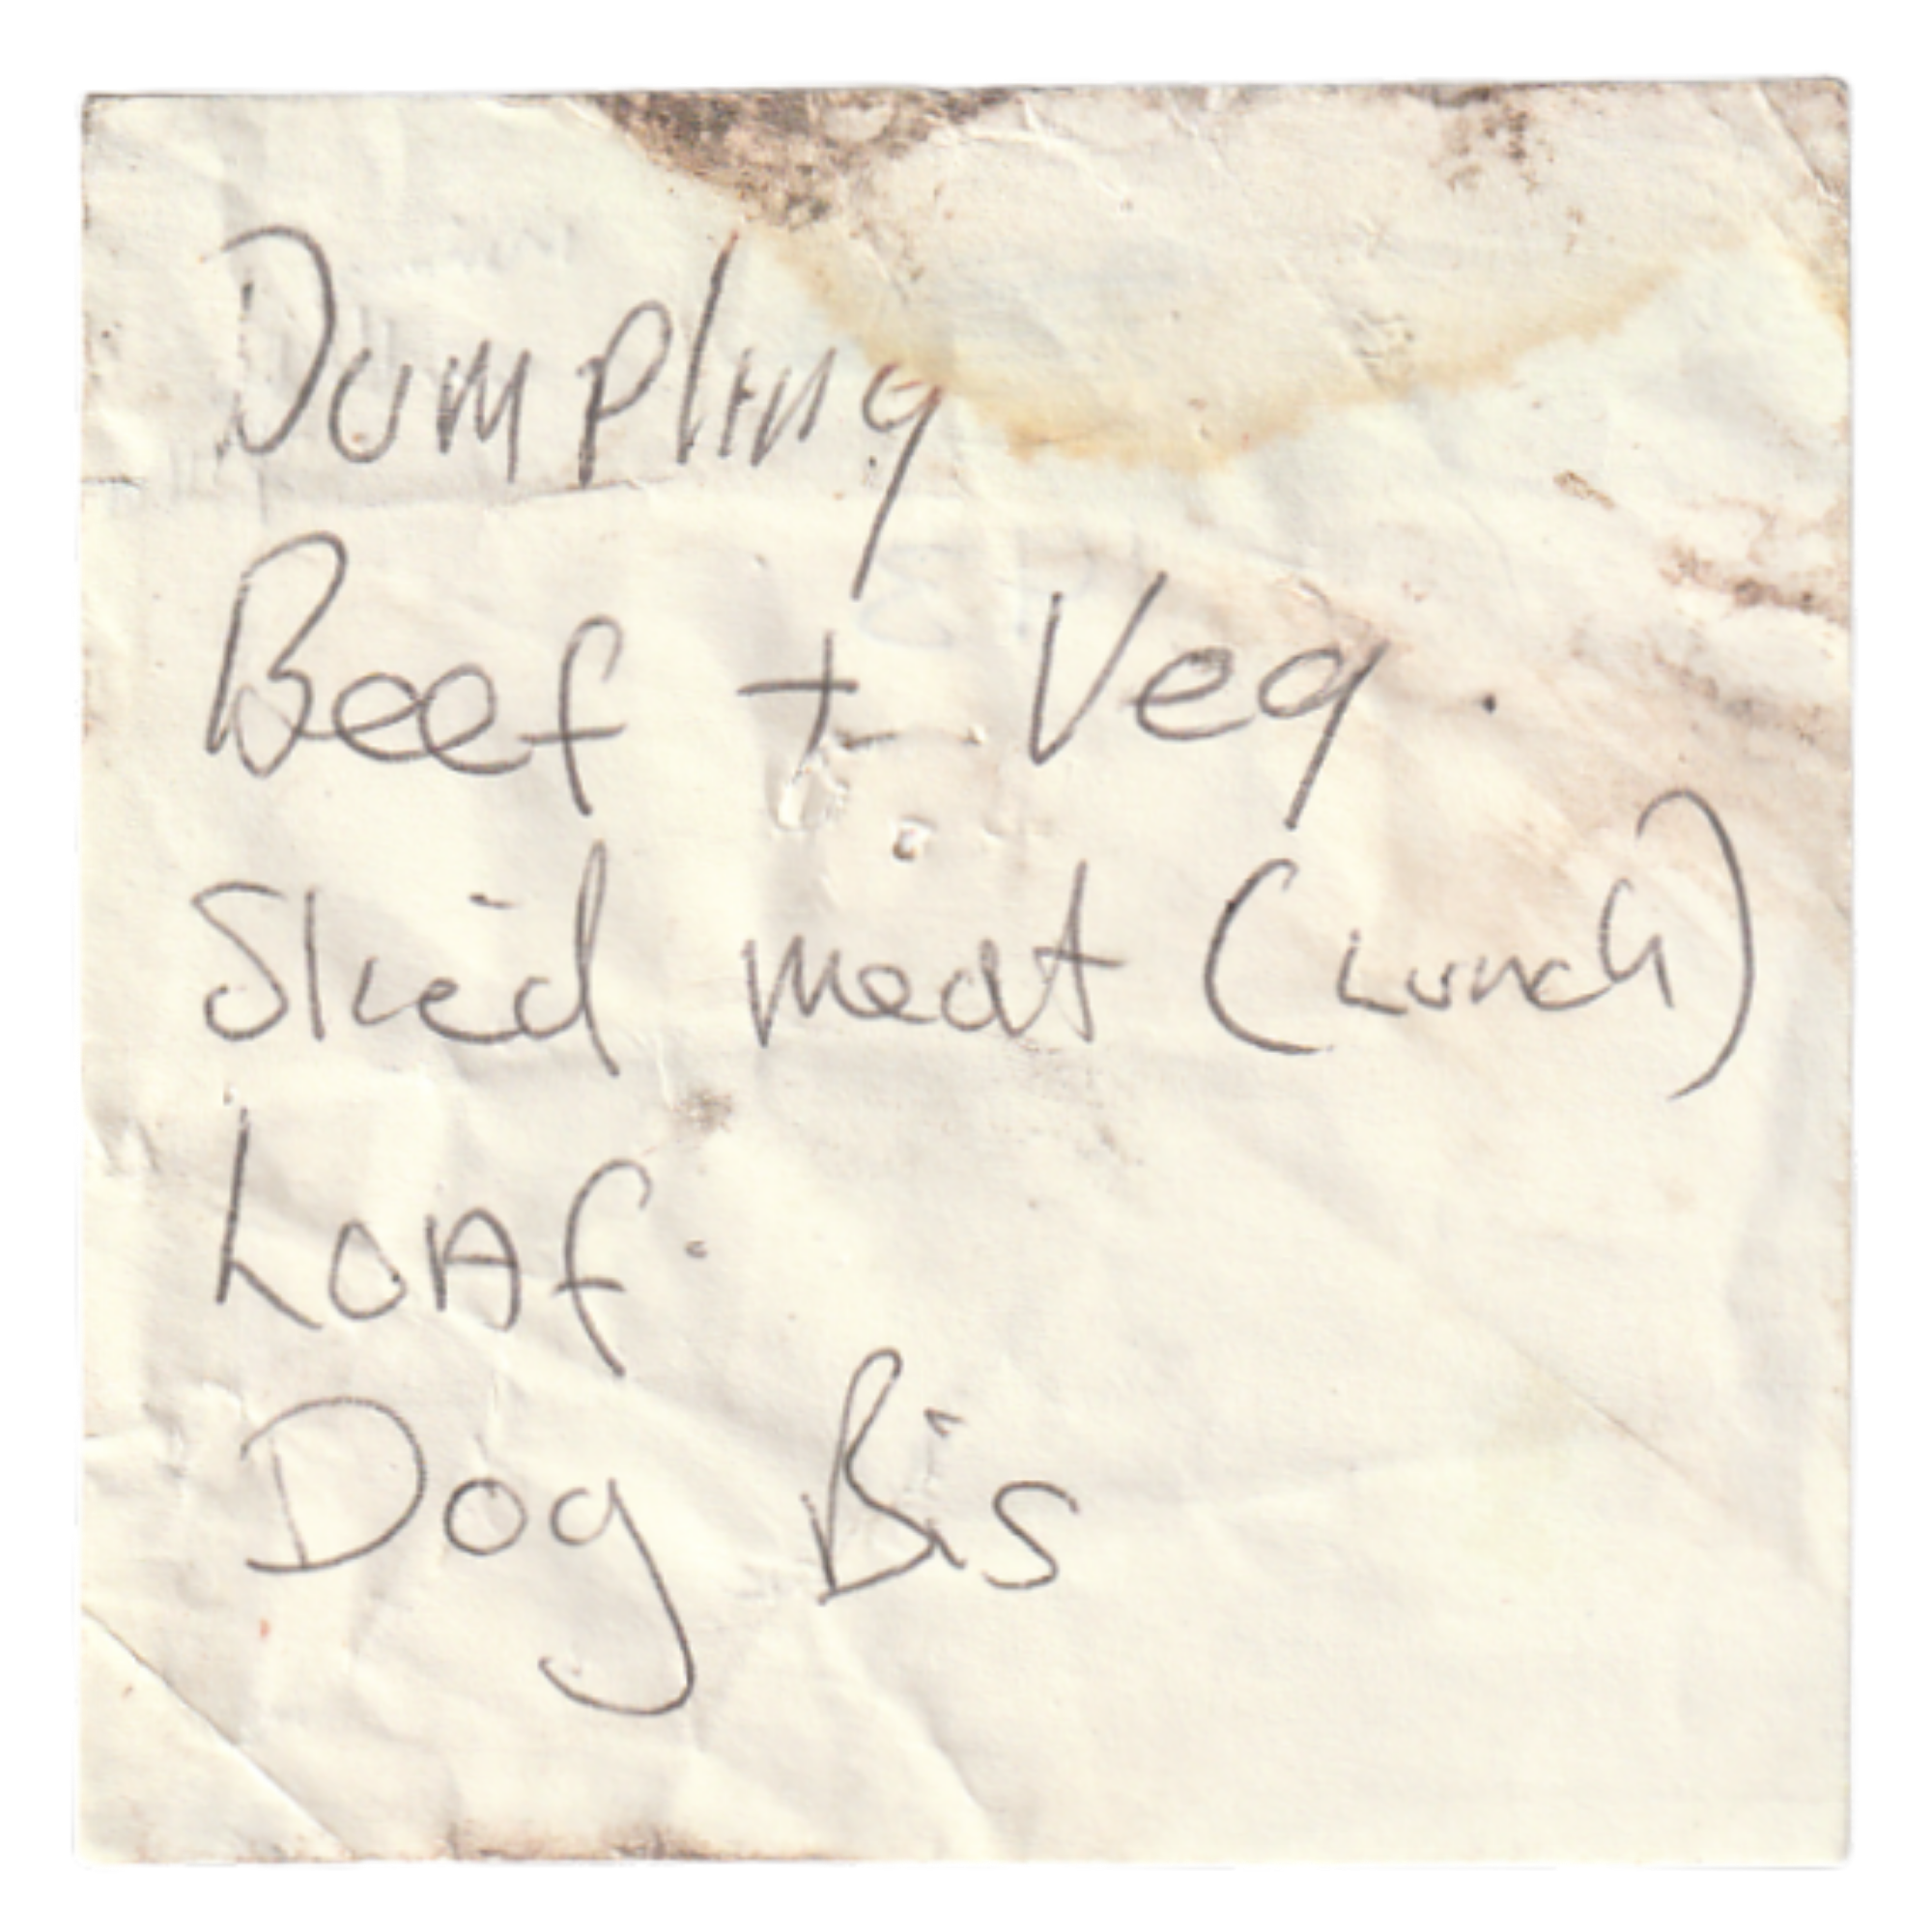 Dumpling
Beef + Veg.
Sliced meat (Lunch)
LOAf.
Dog Bis